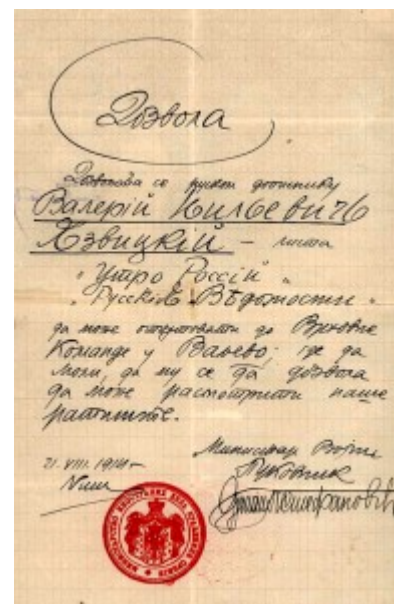 Дозвола
Дозвољава се руском дописнику
Валерій Юильевичъ
Язвицкій – листа
„Утро Россіи"
„Русскія Вѣдомости"
да може отпутовати до Врховне
Команде у Ваљево; где да
моли, да му се да дозвола
да може расмотрити наше
ратиште.
Министар Војни
Пуковник
21. VIII. 1914
Ниш